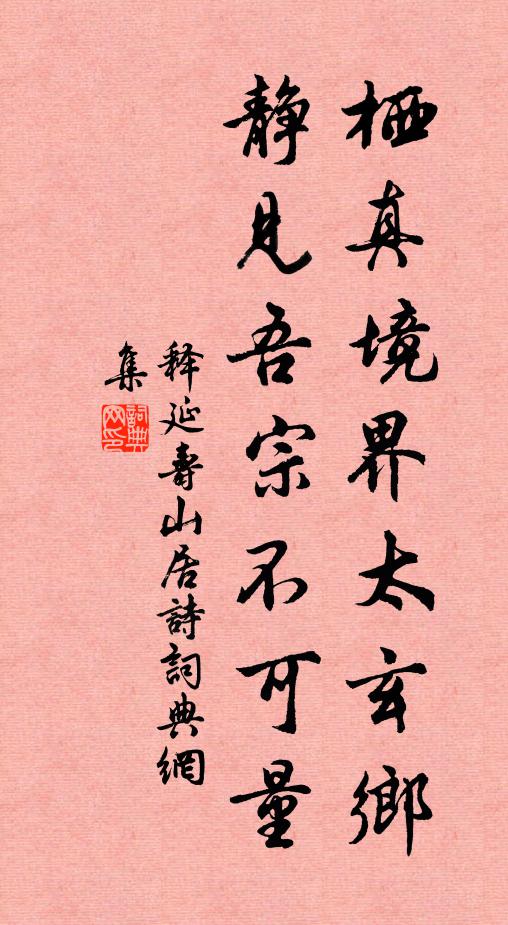 栖真境界太玄鄉
靜見吾宗不可量
釋延壽山居詩詞典網
集
詞典
网印